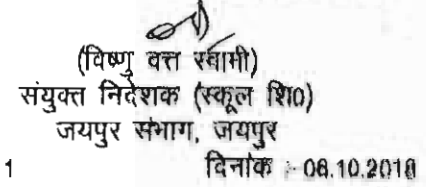 (विष्णु दत्त स्वामी)
संयुक्त निदेशक (स्कूल शि0)
जयपुर संभाग, जयपुर
1 दिनांक :- 08.10.2018